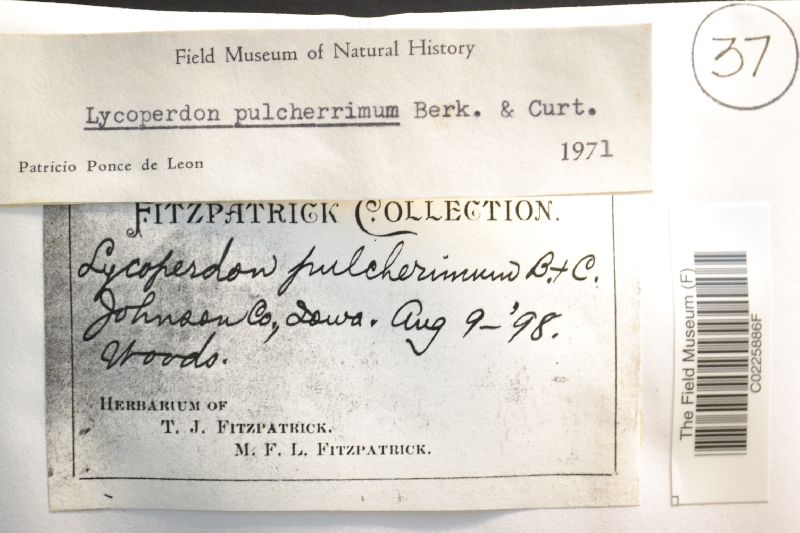 Field Museum of Natural History
Lycoperdon pulcherrimum Berk. & Curt.
1971
Patricio Ponce de Leon
37
FITZPATRICK COLLECTION.
Lycoperdon pulcherimum B.+C.
Johnson Co., Iowa. Aug 9-'98.
Woods.
HERBARIUM OF
T. J. FITZPATRICK.
M. F. L. FITZPATRICK.
The Field Museum (F)
C0225886F